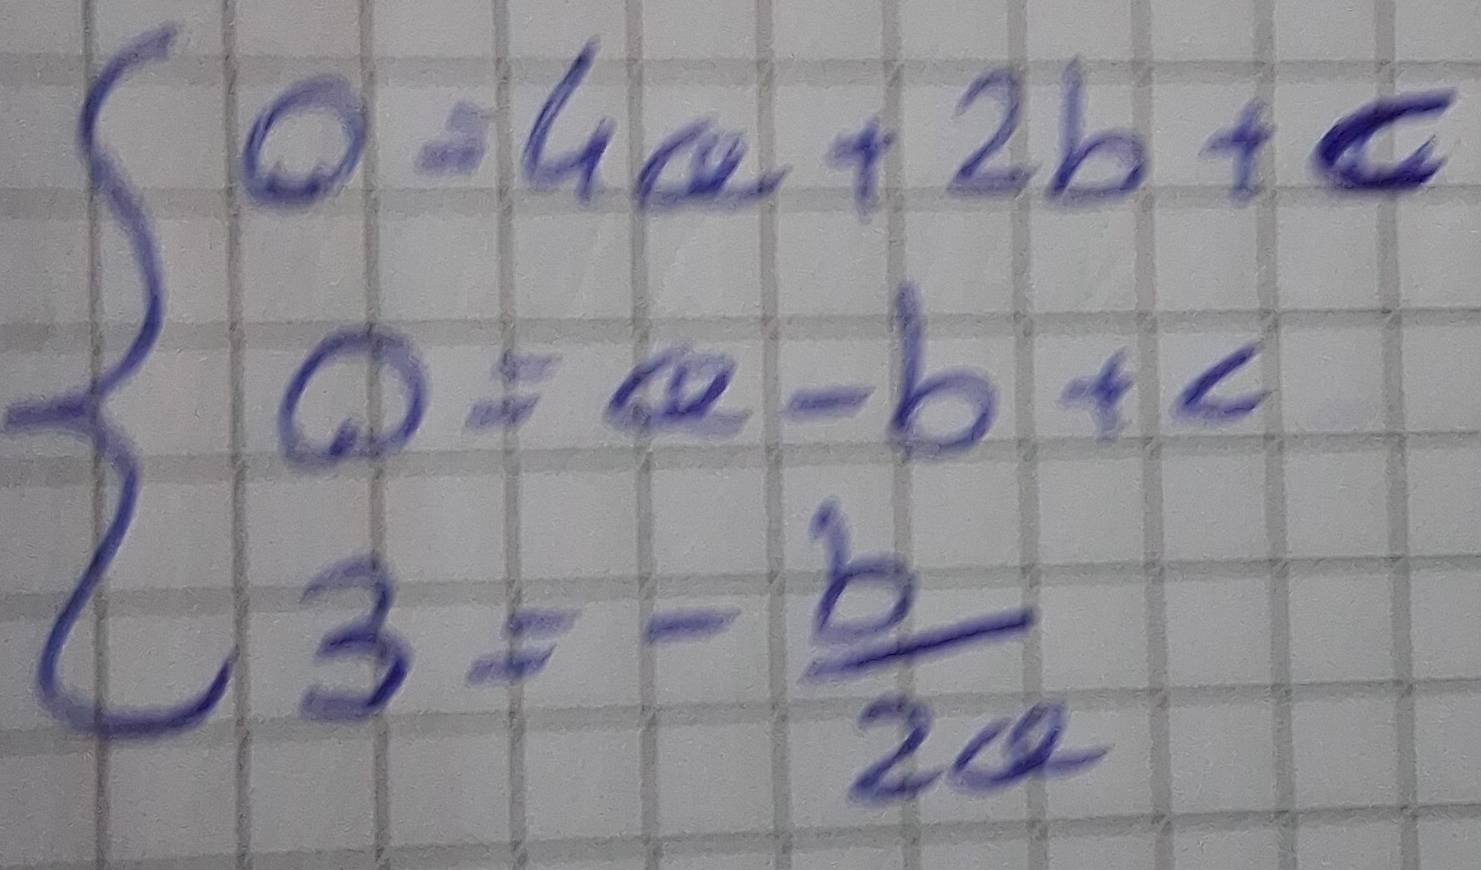 0 = 4a + 2b + c
0 = a - b + c
3 = - b/2a